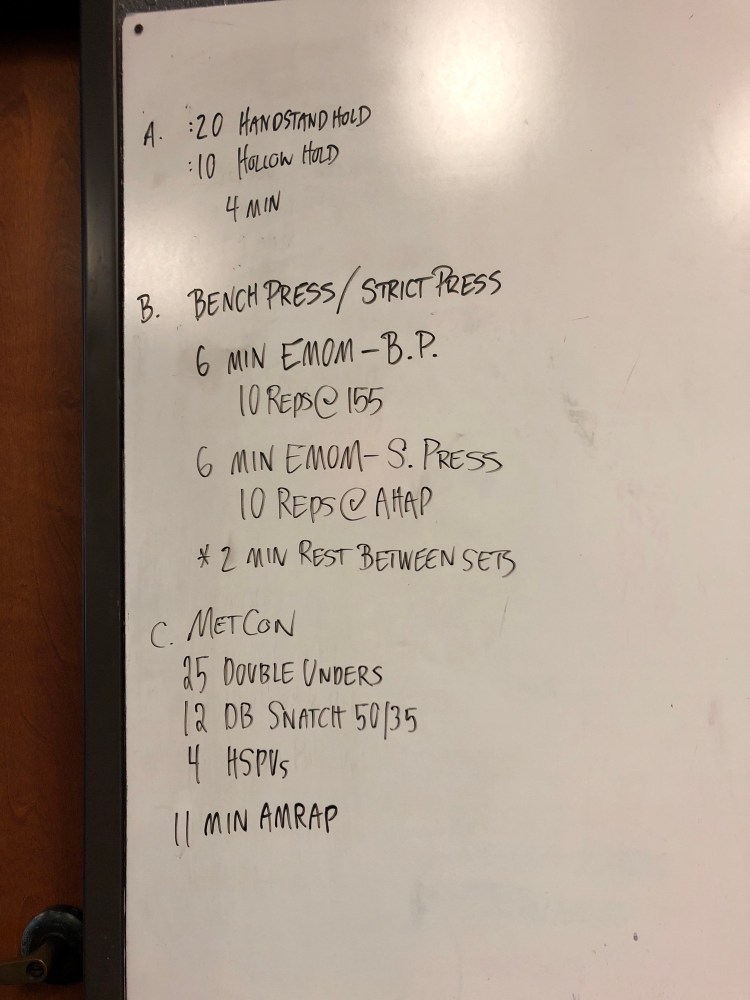 A. :20 HANDSTAND HOLD
:10 HOLLOW HOLD
4 MIN
B. BENCH PRESS/STRICT PRESS
6 MIN EMOM - B.P.
10 REPS @ 155
6 MIN EMOM - S. PRESS
10 REPS @ AHAP
* 2 MIN REST BETWEEN SETS
C. METCON
25 DOUBLE UNDERS
12 DB SNATCH 50/35
4 HSPUs
11 MIN AMRAP